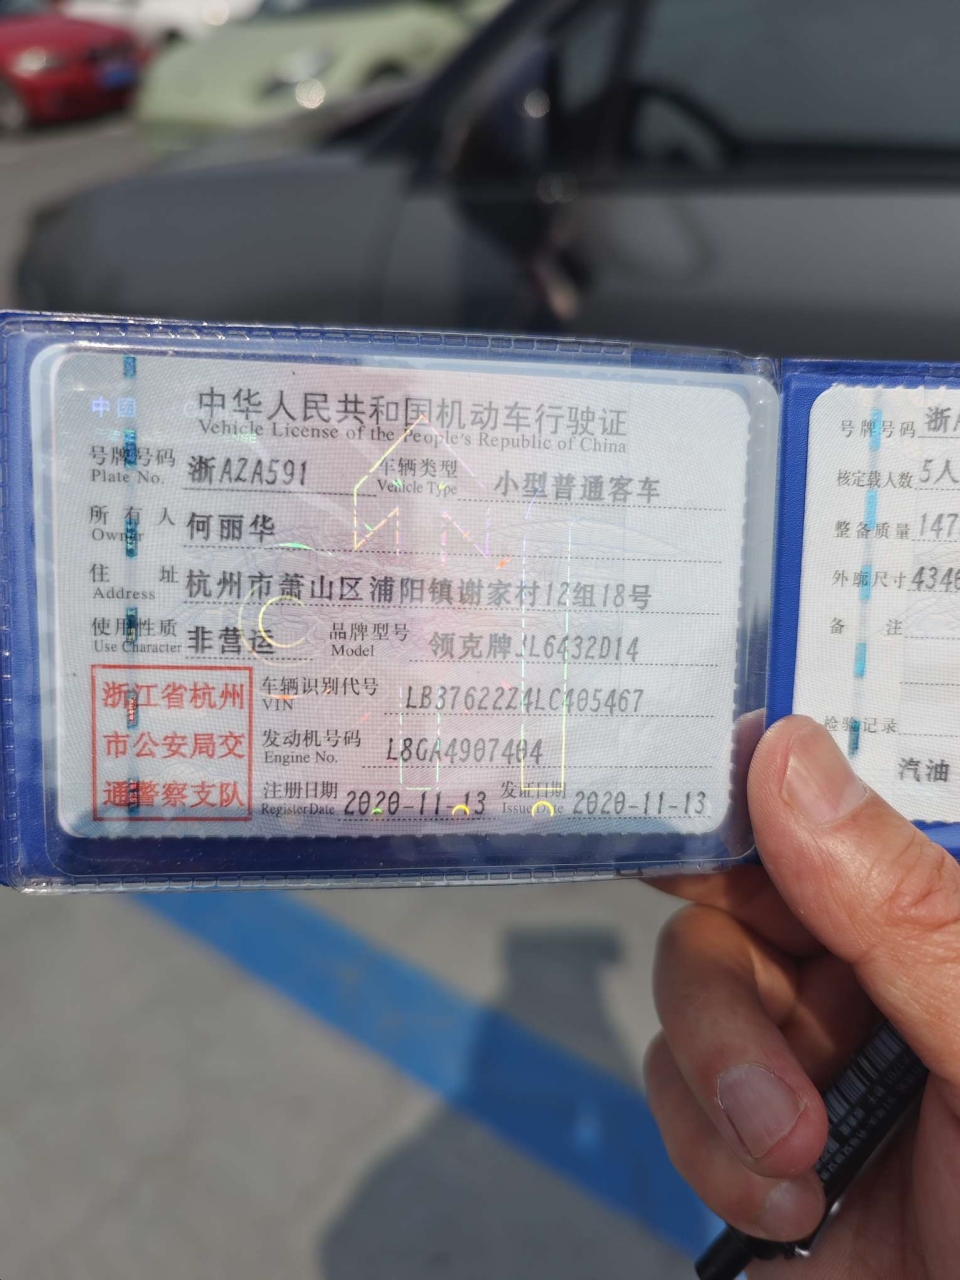 中国
中华人民共和国机动车行驶证
Vehicle License of the People's Republic of China
号牌号码 浙AZA591 车辆类型 小型普通客车
Plate No. Vehicle Type
所有人 何丽华
Owner
住址 杭州市萧山区浦阳镇谢家村12组18号
Address
使用性质 非营运 品牌型号 领克牌JL6432D14
Use Character Model
浙江省杭州
市公安局交
通警察支队
车辆识别代号 LB37622Z4LC405467
VIN
发动机号码 L8GA4907404
Engine No.
注册日期 2020-11-13 发证日期 2020-11-13
Register Date Issue Date
号牌号码 浙A
核定载人数 5人
整备质量 147
外廓尺寸 4346
备注
检验记录
汽油